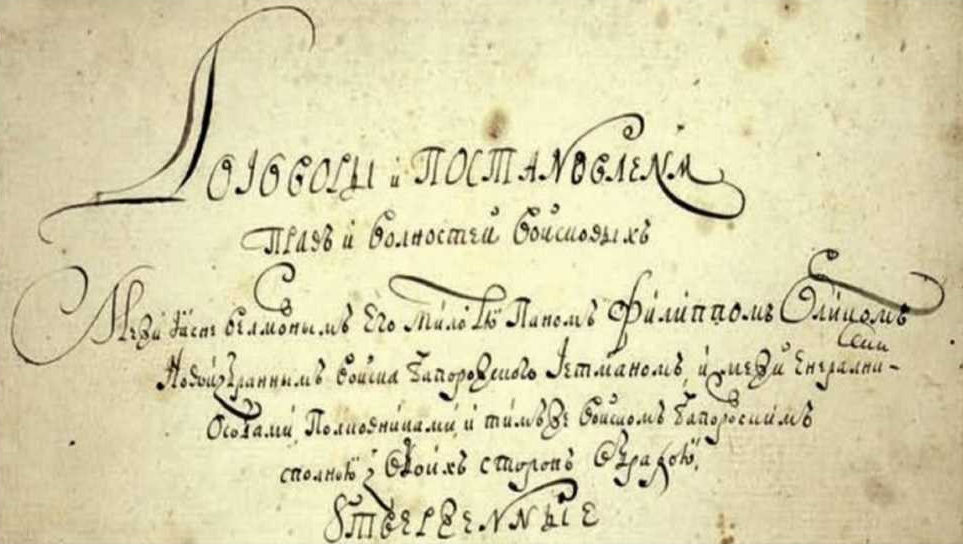 Договоры и ПОСТАNОВЛЕNІѦ
правъ и волностей войсковыхъ
Межи Ясне велможнымъ Его Млстю Паномъ Филиппомъ Орликомъ
Новоизбраннымъ войска Запорожского Гетманомъ, и межи Енералними
Особами, Полковниками, и тимъже войскомъ Запорозскимъ
сполною з обоихъ сторонъ обрадою,
Утверженные